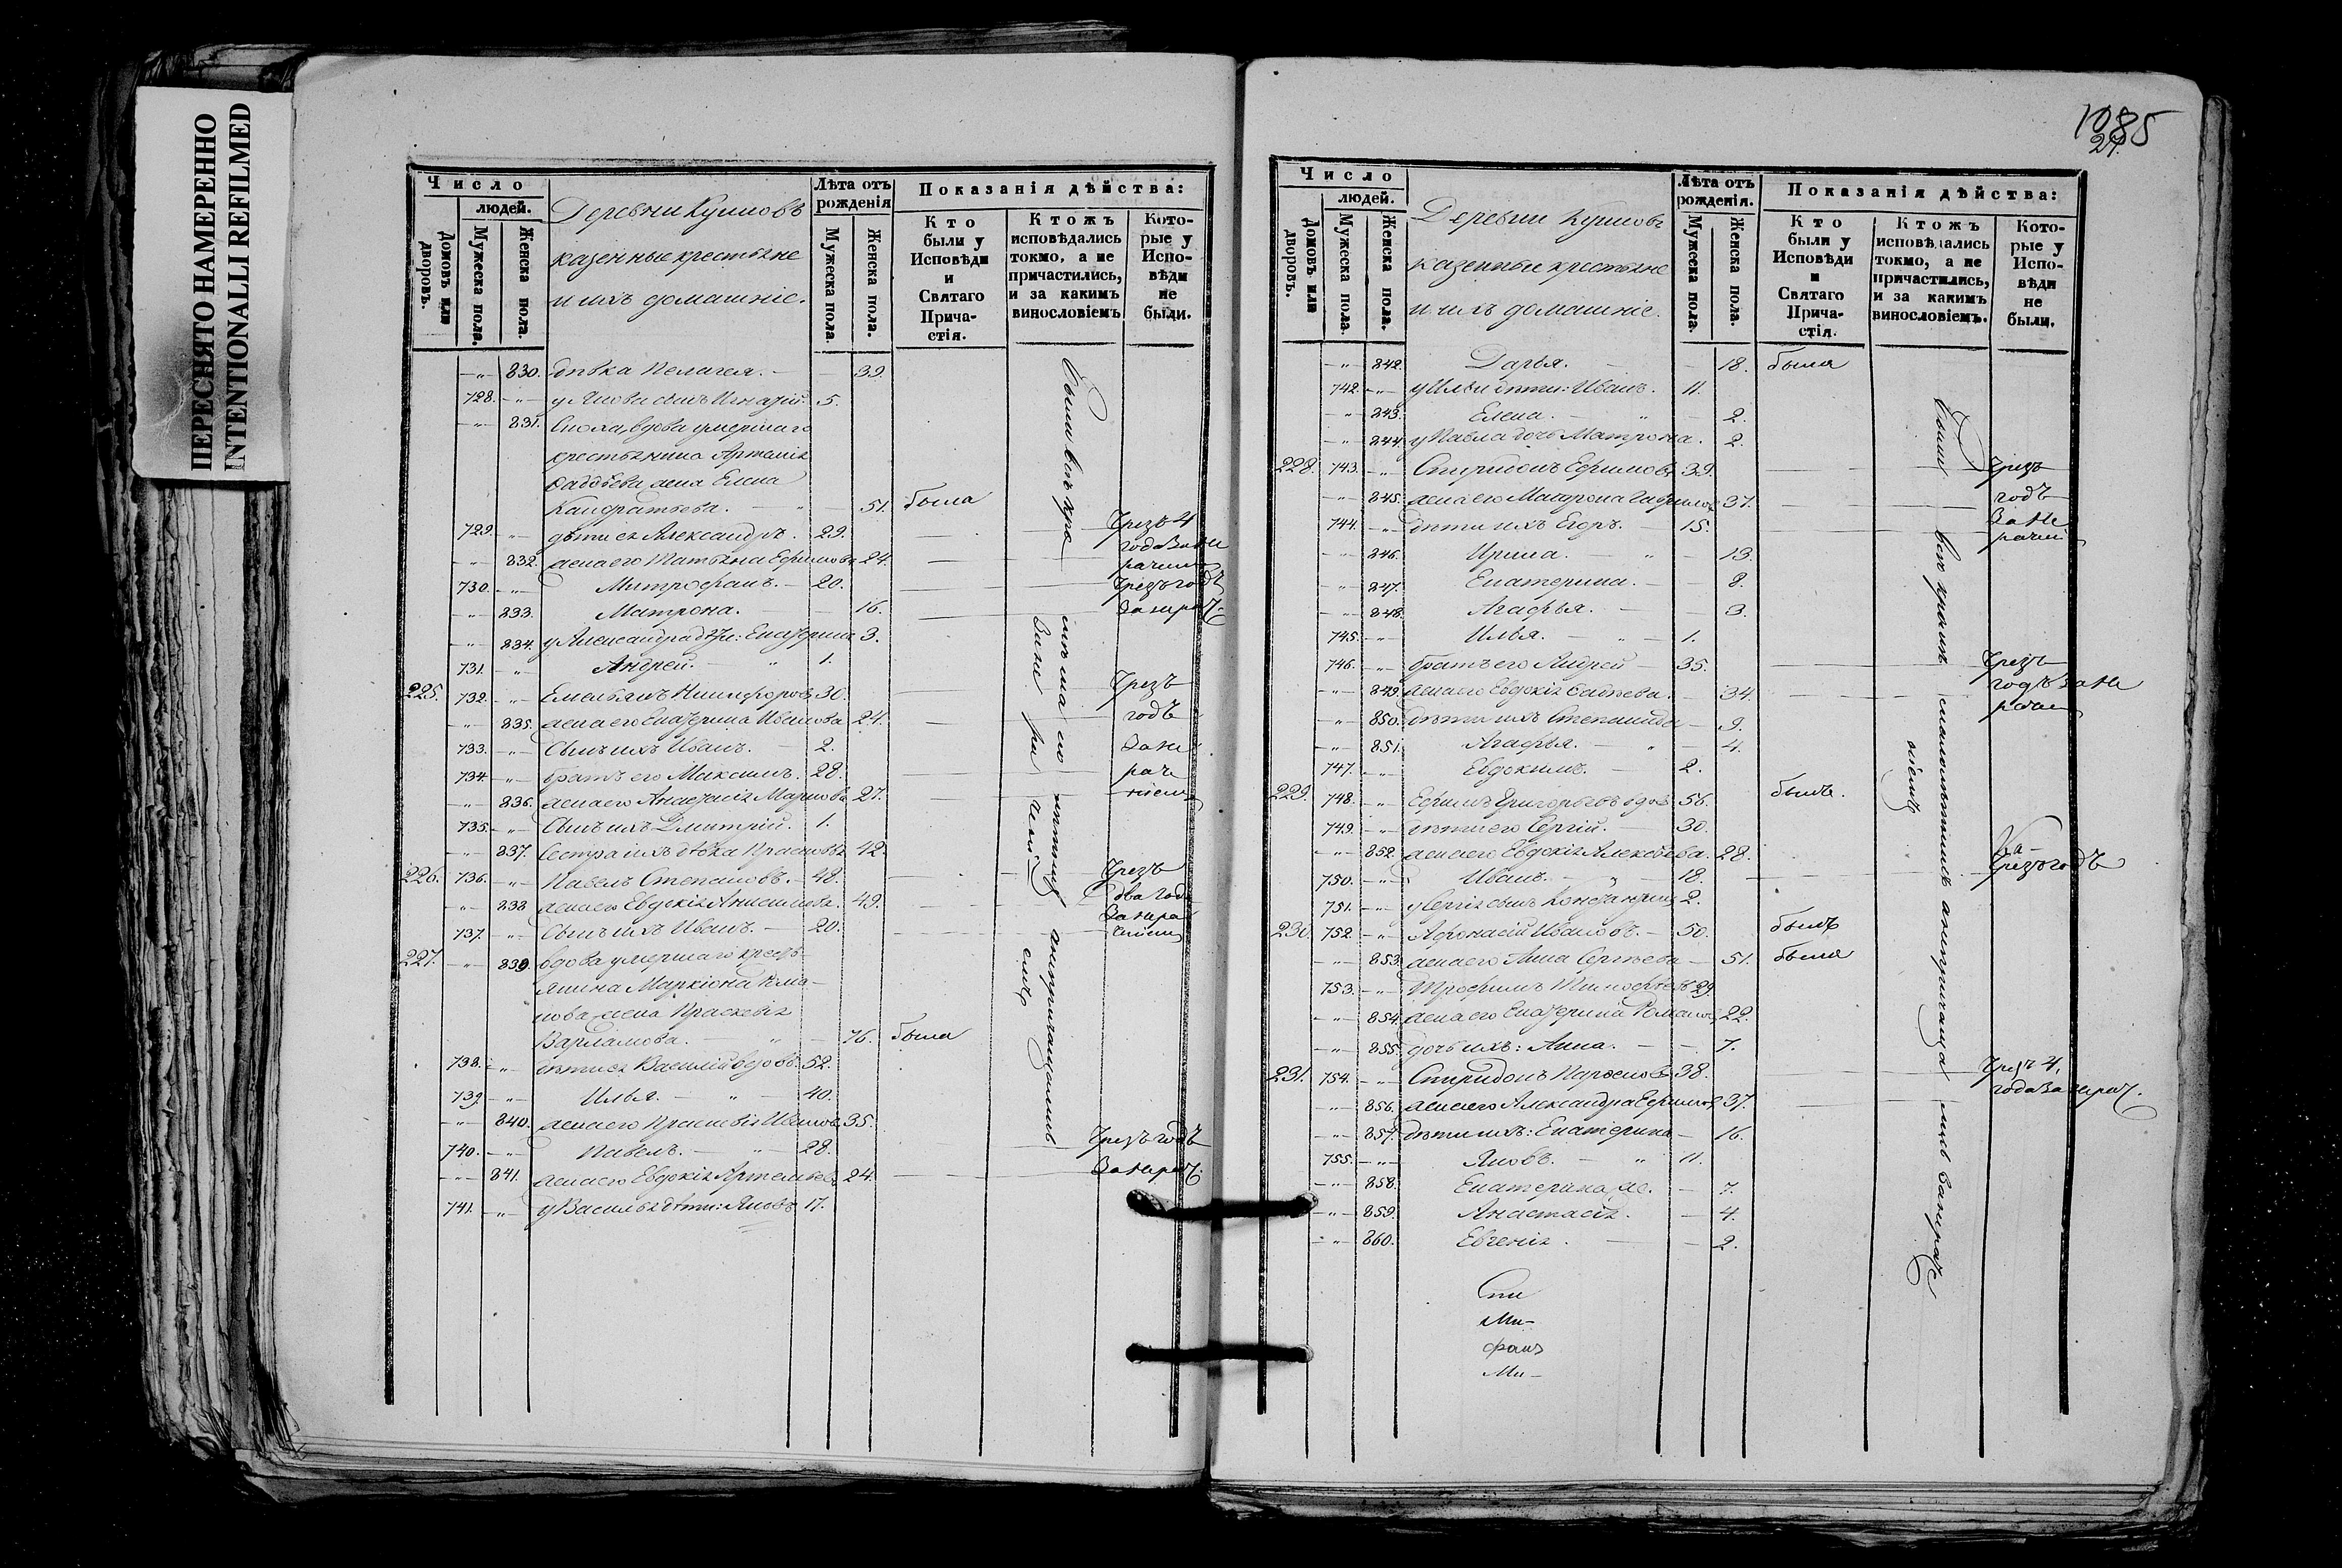 ПЕРЕСНЯТО НАМЕРЕННО
INTENTIONALLI REFILMED
Число
людей.
Домовъ или дворовъ.
Мужеска пола.
Женска пола.
Деревни
казенные крестьяне
и ихъ домашніе.
Лѣта отъ рожденія
Мужеска пола.
Женска пола.
Показанія дѣйства:
Кто были у Исповѣди и Святаго Причастія.
Ктожъ исповѣдались токмо, а не причастились, и за какимъ винословіемъ
Которые у Исповѣди не были.
830. дѣвка Пелагея. 39.
728. у Якова сынъ Игнатій. 5.
831. Сноха, вдова умершаго
крестьянина Артемія
Фаддѣева жена Елена
Кандратьева. 51. была
729. дѣти ея Александръ. 29. Чрезъ 4
832. жена его Татьяна Ефимова 24. года за не
730. Митрофанъ. 20. Чрезъ годъ
833. Матрона. 16. за нерач.
834. у Александра дѣти: Екатерина 3.
731. Андрей. 1.
225. 732. Емельянъ Никифоровъ 30. Чрезъ
835. жена его Екатерина Иванова 24. годъ
733. Сынъ ихъ Иванъ. 2. за не
734. братъ его Максимъ. 28. раче
836. жена его Анастасія Маркова 27. ніемъ
735. Сынъ ихъ Дмитрій. 1.
837. Сестра ихъ дѣвка 42.
226. 736. Павелъ Степановъ. 48. Чрезъ
838 жена его Евдокія Анисимова. 49. два года
за нера
737. Сынъ ихъ Иванъ. 20. ченіемъ
227. 839. вдова умершаго кресть-
янина Маркіона Рома-
нова жена Праскевія
Варламова. 76. была
738. дѣти ея Василій вдовъ. 52.
739. Илья. 40.
840. жена его Праскевія Иванова 35.
740. Павелъ. 28. Чрезъ годъ
841. жена его Евдокія Артемьева 24. за нерач.
741. у Василья дѣти: Яковъ 17.
1085
27.
Число
людей.
Домовъ или дворовъ.
Мужеска пола.
Женска пола.
Деревни
казенные крестьяне
и ихъ домашніе.
Лѣта отъ рожденія.
Мужеска пола.
Женска пола.
Показанія дѣйства:
Кто были у Исповѣди и Святаго Причастія.
Ктожъ исповѣдались токмо, а не причастились, и за какимъ винословіемъ.
Которые у Исповѣди не были.
842. Дарья. 18. была
742. у Ильи дѣти: Иванъ. 11.
843. Елена. 2.
844. у Павла дочь Матрона. 2.
228. 743. Спиридонъ Ефимовъ 39. Чрезъ
845. жена его Матрона 37. годъ
744. дѣти ихъ Егоръ. 15. за не
846. Ирина. 13.
847. Екатерина. 8.
848. Агафья. 3.
745. Илья. 1.
746. братъ его Андрей 35. Чрезъ
849. жена его Евдокія 34. годъ за не
850. дѣти ихъ Степанида 9.
851. Агафья. 4.
747. Евдокимъ. 2.
229. 748. Ефимъ Григорьевъ вдовъ 56. былъ.
749. дѣти его Сергій. 30.
852. жена его Евдокія Алексѣева. 28.
750. Иванъ. 18. Чрезъ годъ
751. у Сергія сынъ Константинъ 2.
230. 752. Афонасій Ивановъ. 50. былъ
853. жена его Анна Сергѣева 51. была
753. Трофимъ Тимофѣевъ 29.
854. жена его Екатерина Романова 22.
855. дочь ихъ: Анна. 7.
231. 754. Спиридонъ 38. Чрезъ 4,
856. жена его Александра Ефимова 37. года за нерач.
857. дѣти ихъ: Екатерина 16.
755. Яковъ. 11.
858. Екатерина же. 7.
859. Анастасія. 4.
860. Евгенія. 2.
Ми-
фанъ
Ми-